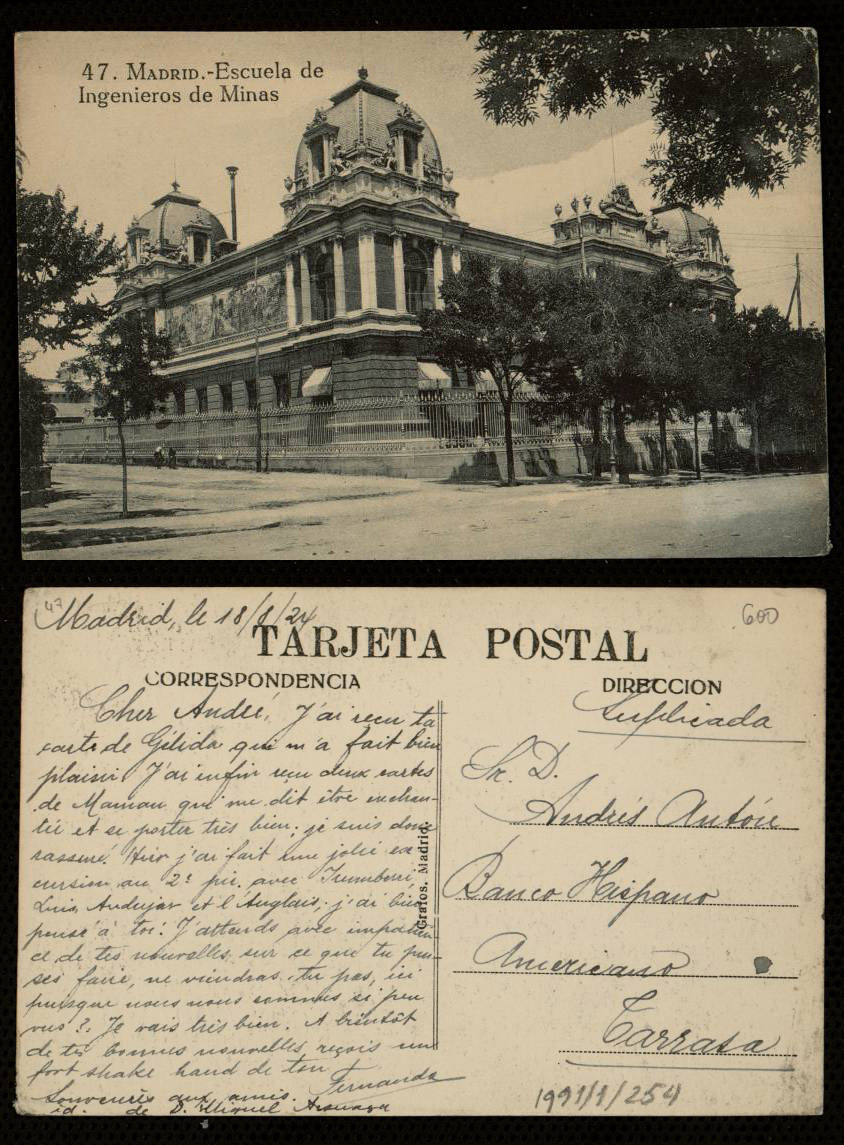 47. MADRID.-Escuela de
Ingenieros de Minas
47
Madrid, le 18/8/24
600
TARJETA POSTAL
CORRESPONDENCIA
DIRECCION
Cher André, J'ai reçu ta
carte de Gélida qui m'a fait bien
plaisir. J'ai enfin reçu deux cartes
de Maman qui me dit être enchan-
tée et se porter très bien; je suis donc
rassuré. Hier j'ai fait une jolie ex
cursion au 2º pic. avec
Luis Andujar et l'Anglais; j'ai bien
pensé à toi. J'attends avec impatien
ce de tes nouvelles sur ce que tu pen-
ses faire, ne viendras-tu pas, ici
puisque nous nous sommes si peu
vus?. Je vais très bien. A bientôt
de tes bonnes nouvelles reçois un
fort shake hand de ton Fernando
Souvenirs aux amis.
id. de D. Miguel
Grafos. Madrid.
Suplicada
Sr. D.
Andrés Antoie
Banco Hispano
Americano
Tarrasa
1991/1/254